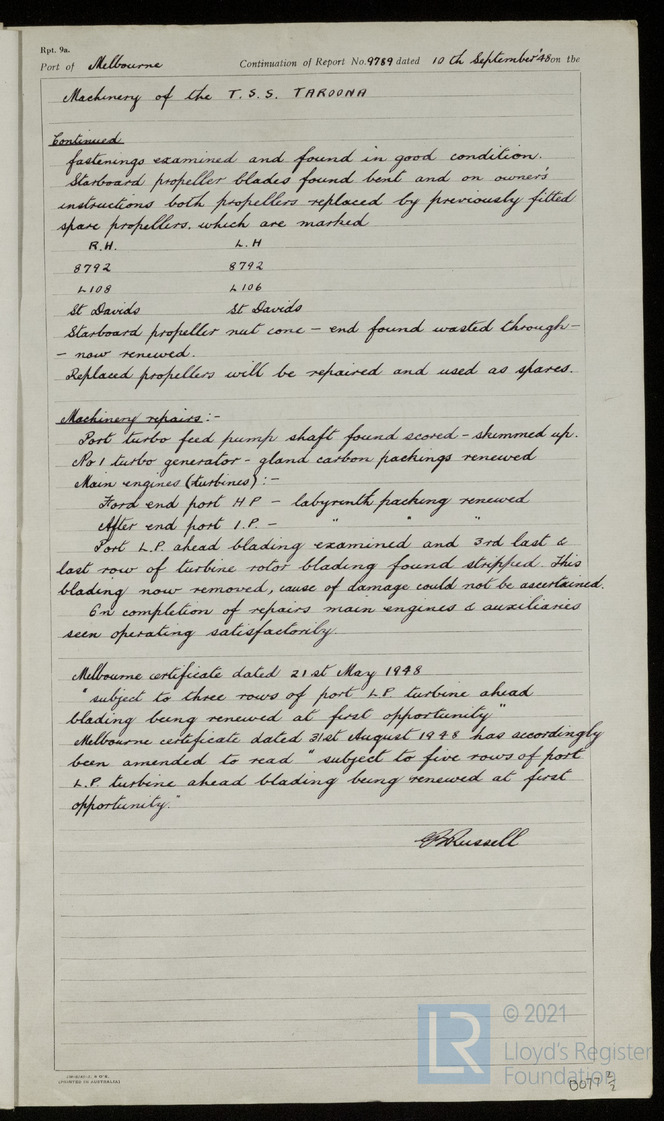 Rpt. 9a.
Port of Melbourne Continuation of Report No. 9789 dated 10th September '48 on the
Machinery of the T.S.S. TAROONA
Continued
fastenings examined and found in good condition.
Starboard propeller blades found bent and on owner's
instructions both propellers replaced by previously fitted
spare propellers. which are marked
R.H. L.H
8792 8792
L108 L106
St Davids St Davids
Starboard propeller nut cone - end found wasted through -
- now renewed.
Replaced propellers will be repaired and used as spares.
Machinery repairs:-
Port turbo feed pump shaft found scored - skimmed up.
No 1 turbo generator - gland carbon packings renewed
Main engines (turbines):-
Ford end port HP - labyrinth packing renewed
After end port I.P. - " " "
Port L.P. ahead blading examined and 3rd last &
last row of turbine rotor blading found stripped. This
blading now removed, cause of damage could not be ascertained.
On completion of repairs main engines & auxiliaries
seen operating satisfactorily.
Melbourne certificate dated 21st May 1948
"subject to three rows of port LP turbine ahead
blading being renewed at first opportunity"
Melbourne certificate dated 31st August 1948 has accordingly
been amended to read "subject to five rows of port
L.P. turbine ahead blading being renewed at first
opportunity."
Russell
(PRINTED IN AUSTRALIA)
LR
© 2021
Lloyd's Register
Foundation
0077 2/2